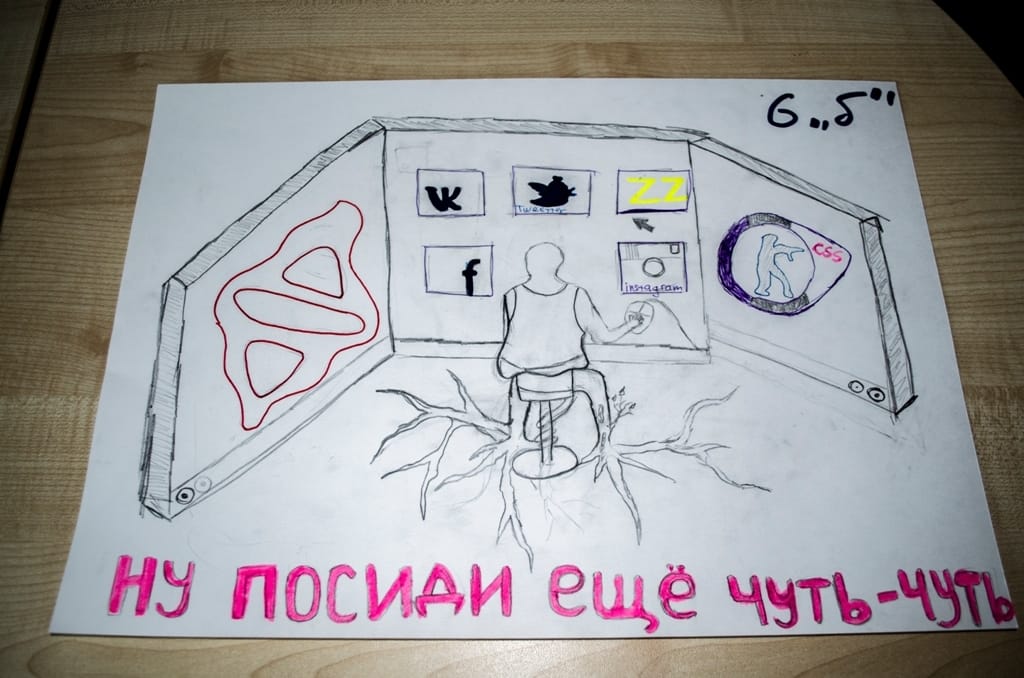 6 „б"
VK
Twetter
ZZ
f
instagram
css
ну посиди ещё чуть-чуть